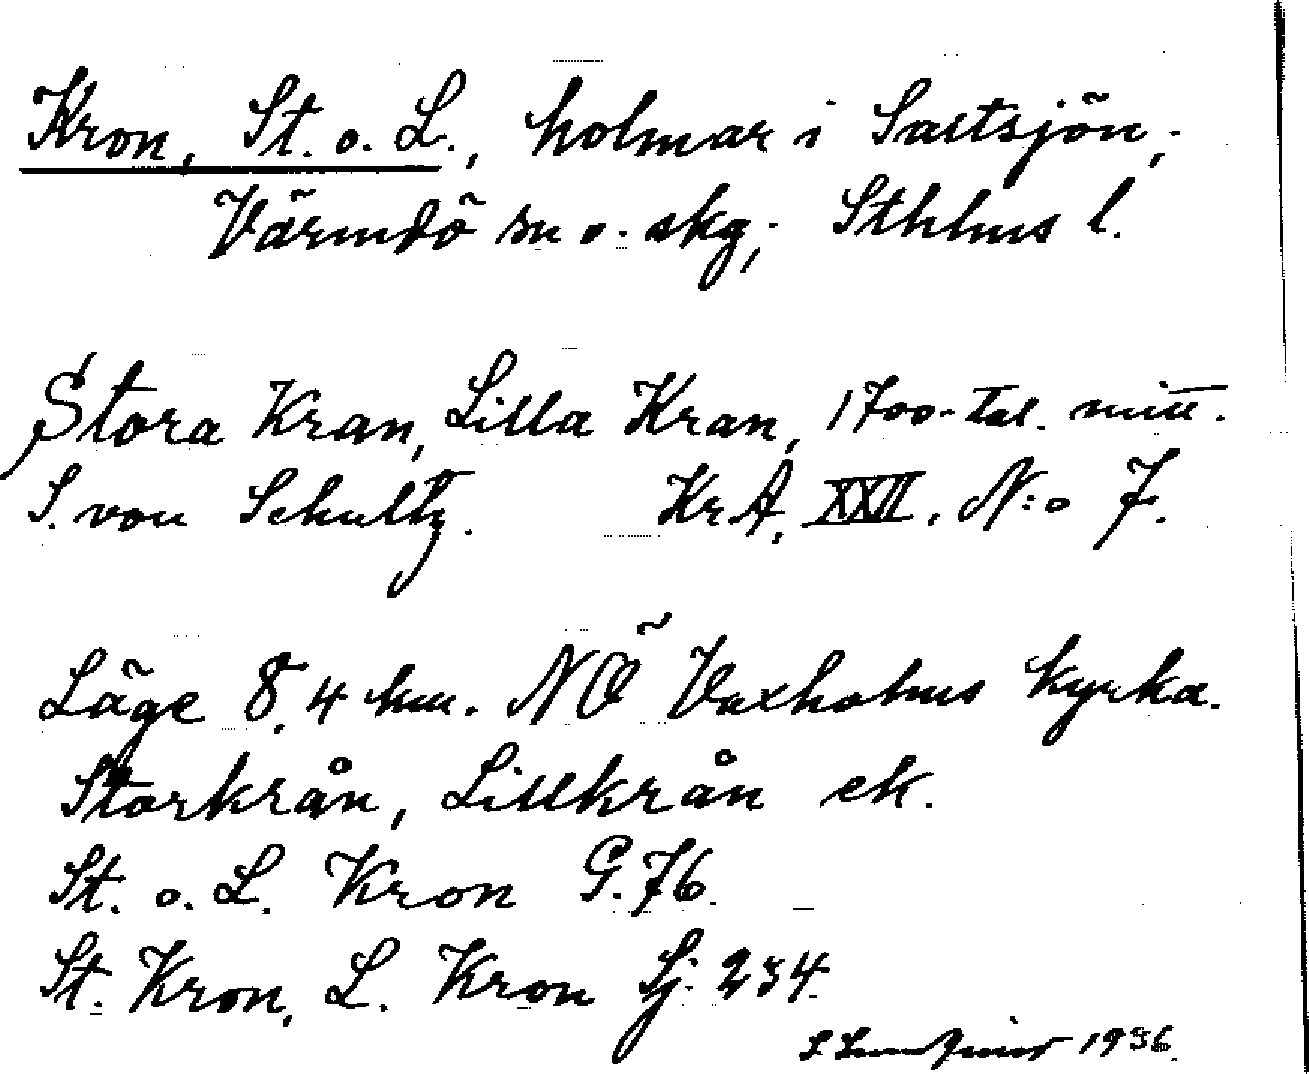 Kron, St. o. L., holmar i Saltsjön,
Värmdö sn o. skg, Sthlms l.
Stora Kran, Lilla Kran, 1700-tal. mitt.
S. von Schultz. KrA, XXII, N:o 7.
Läge 8,4 km. NÖ Vaxholms kyrka.
Storkrån, Lillkrån ek.
St. o. L. Kron G. 76.
St. Kron, L. Kron Sj. 234.
1936.